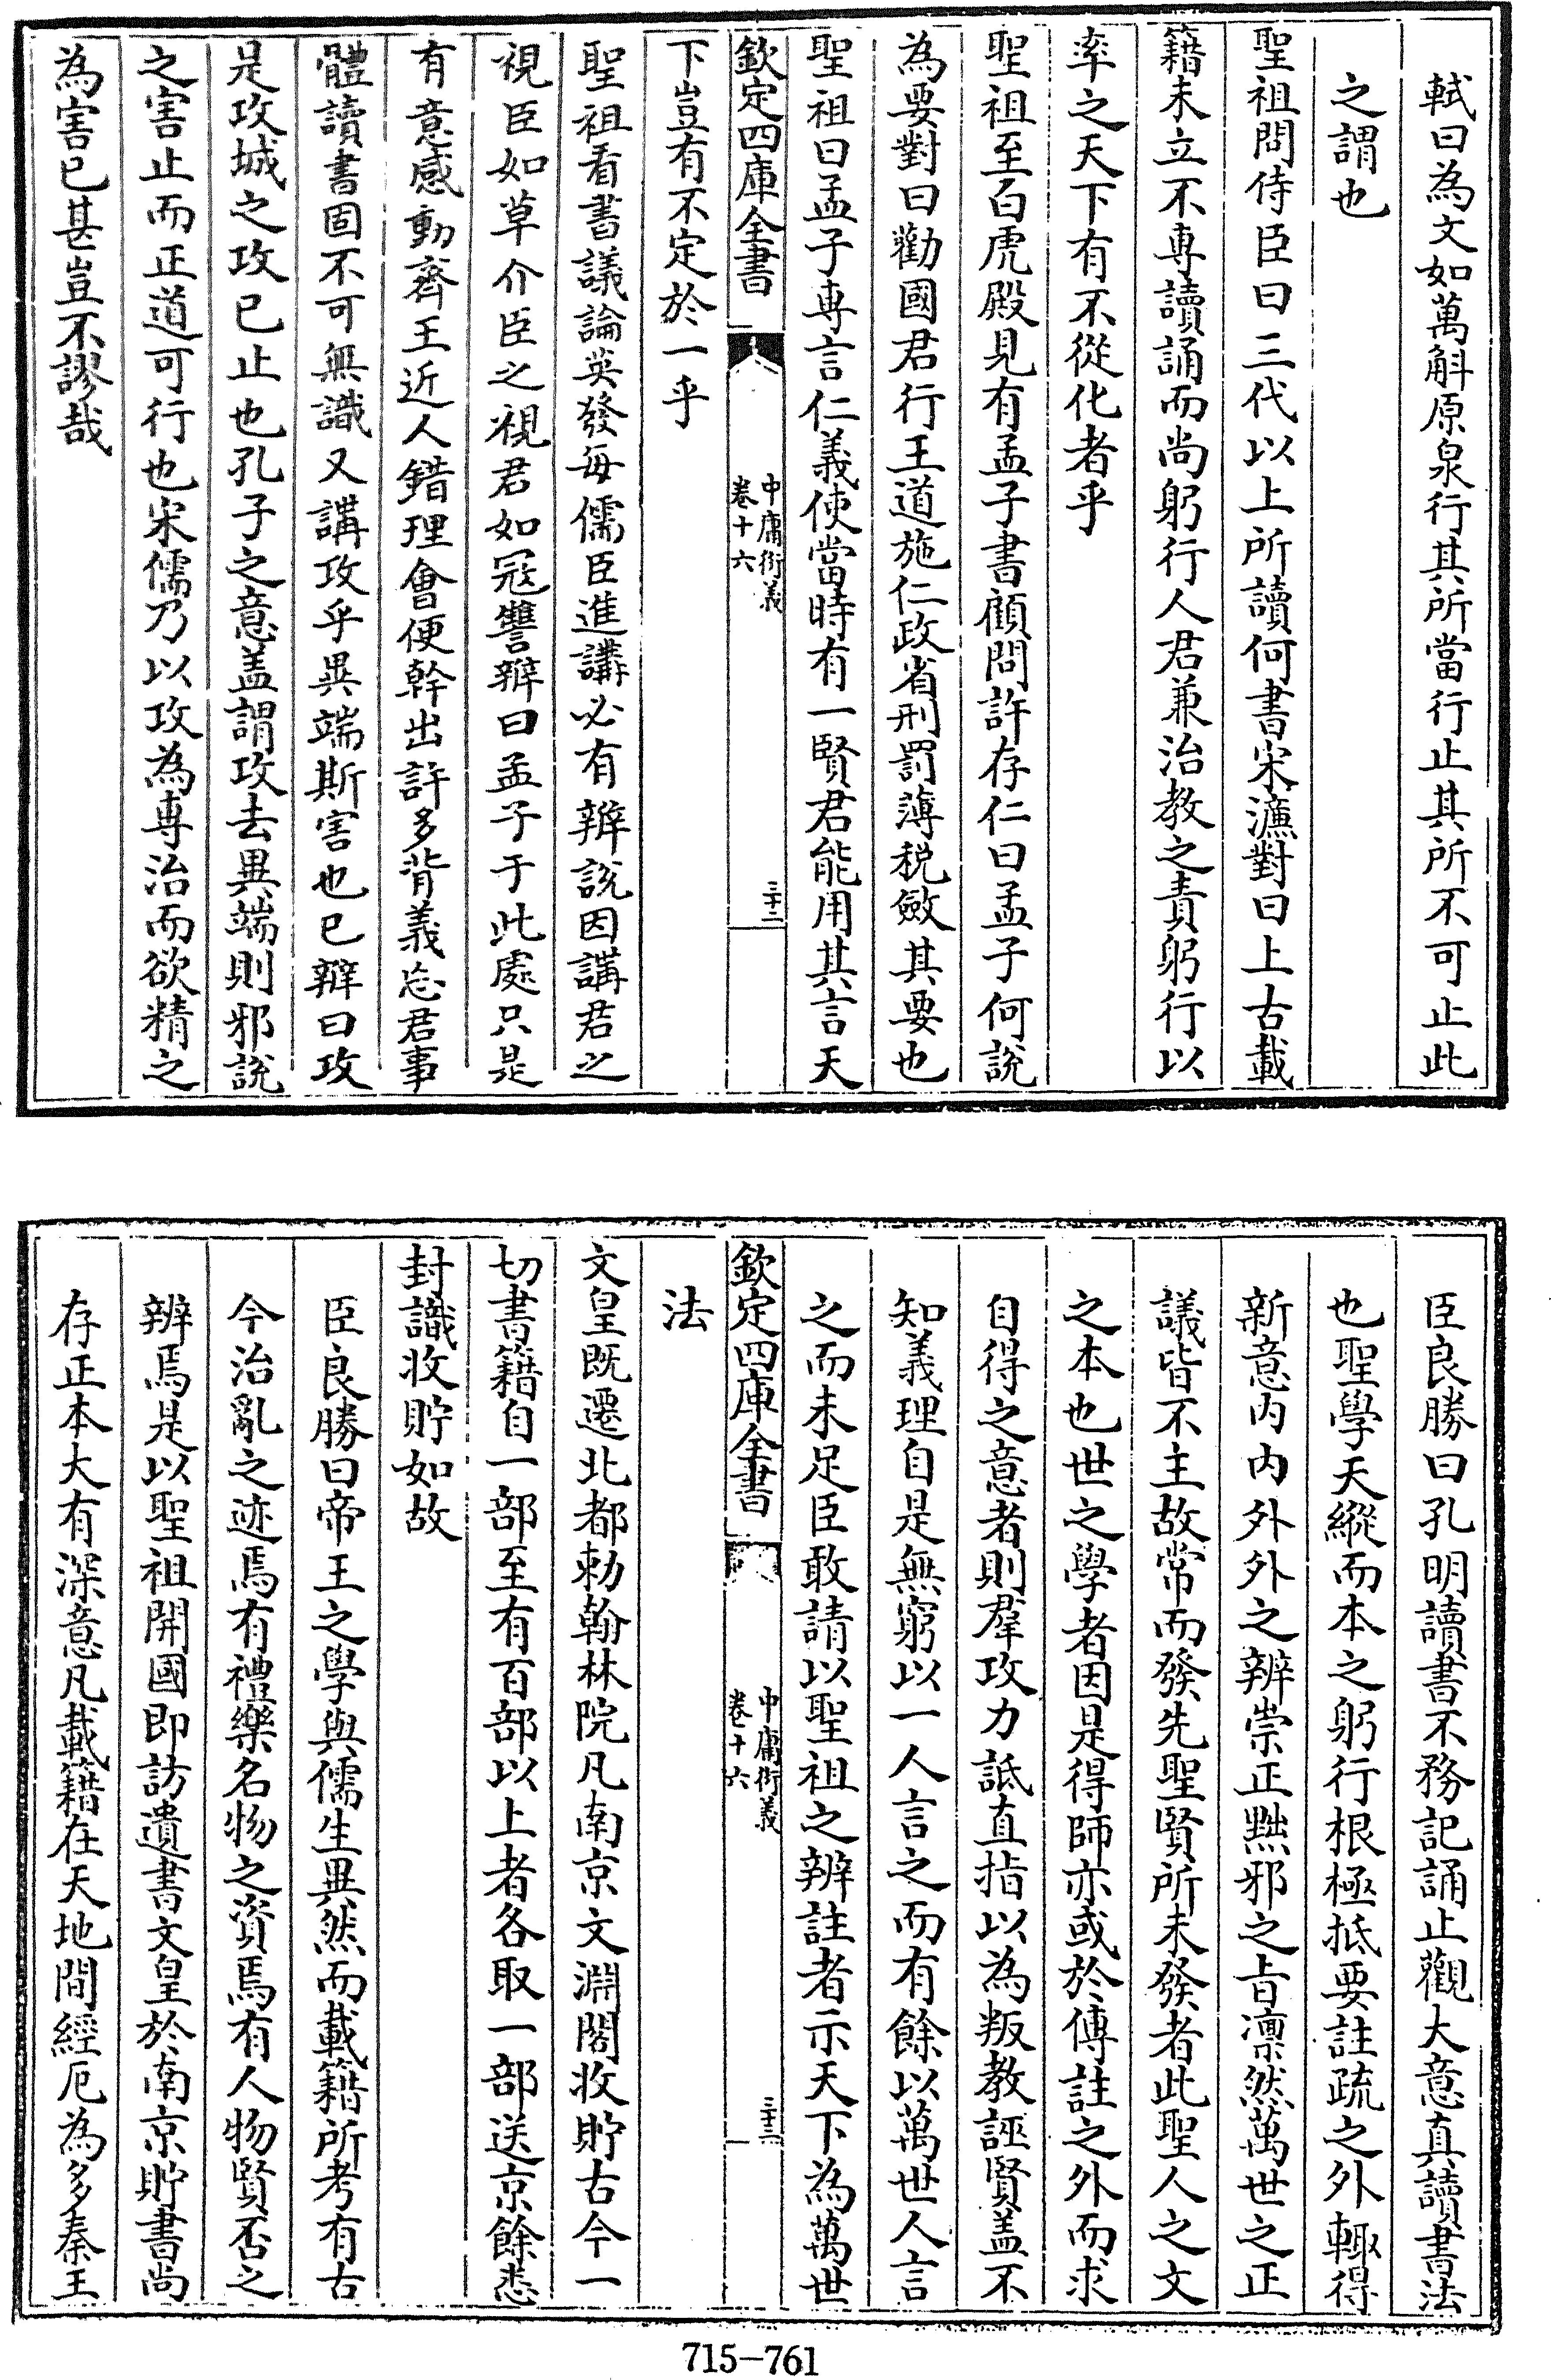 軾曰為文如萬斛原泉行其所當行止其所不可止此
之謂也
聖祖問侍臣曰三代以上所讀何書宋濂對曰上古載
籍未立不專讀誦而尚躬行人君兼治教之責躬行以
率之天下有不從化者乎
聖祖至白虎殿見有孟子書顧問許存仁曰孟子何說
為要對曰勸國君行王道施仁政省刑罰薄稅斂其要也
聖祖曰孟子專言仁義使當時有一賢君能用其言天
欽定四庫全書
中庸衍義
卷十六
三十二
下豈有不定於一乎
聖祖看書議論英發每儒臣進講必有辨說因講君之
視臣如草介臣之視君如冦讐辨曰孟子于此處只是
有意感動齊王近人錯理會便幹出許多背義忘君事
體讀書固不可無識又講攻乎異端斯害也已辨曰攻
是攻城之攻已止也孔子之意盖謂攻去異端則邪說
之害止而正道可行也宋儒乃以攻為專治而欲精之
為害已甚豈不謬哉
臣良勝曰孔明讀書不務記誦止觀大意真讀書法
也聖學天縱而本之躬行根極抵要註疏之外輙得
新意内内外外之辨崇正黜邪之旨凛然萬世之正
議皆不主故常而發先聖賢所未發者此聖人之文
之本也世之學者因是得師亦或於傳註之外而求
自得之意者則羣攻力詆直指以為叛教誣賢盖不
知義理自是無窮以一人言之而有餘以萬世人言
之而未足臣敢請以聖祖之辨註者示天下為萬世
欽定四庫全書
中庸衍義
卷十六
三十三
法
文皇既遷北都勅翰林院凡南京文淵閣收貯古今一
切書籍自一部至有百部以上者各取一部送京餘悉
封識收貯如故
臣良勝曰帝王之學與儒生異然而載籍所考有古
今治亂之迹焉有禮樂名物之資焉有人物賢否之
辨焉是以聖祖開國即訪遺書文皇於南京貯書尚
存正本大有深意凡載籍在天地間經厄為多秦王
715-761